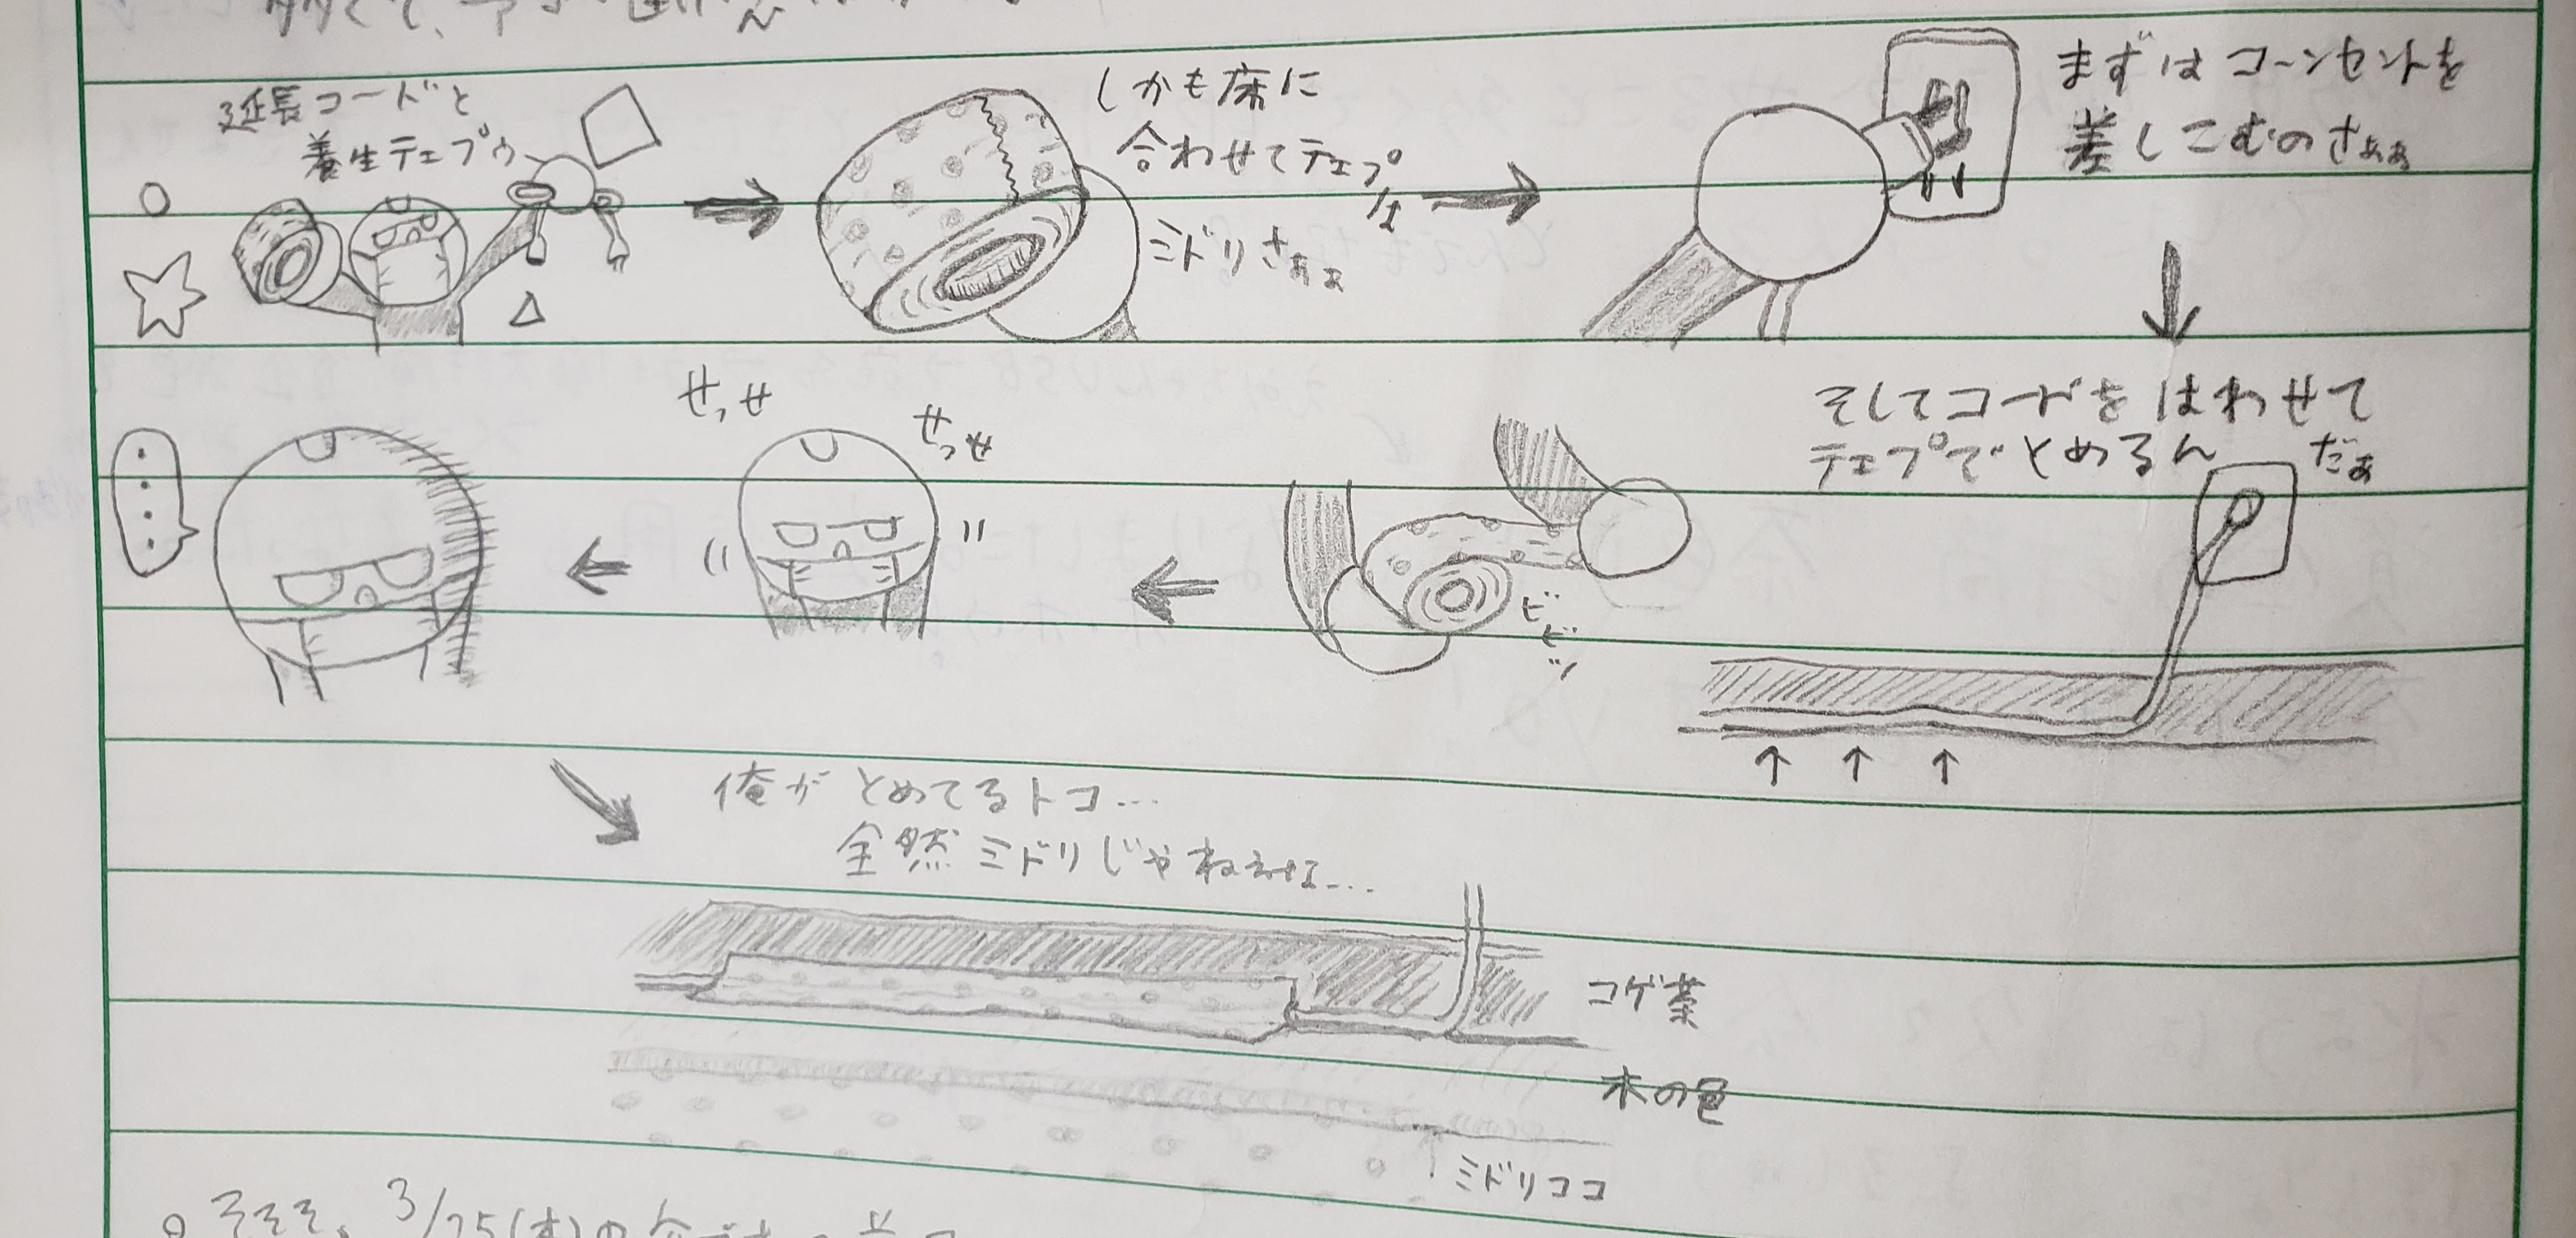 延長コードと
養生テェプゥ
しかも床に
合わせてテェプ
ミドリさぁぁ
まずはコーンセントを
差しこむのさぁぁ
そしてコードをはわせて
テェプでとめるんだぁ
ビビッ
せっせ
せっせ
・・・・
俺がとめてるトコ…
全然ミドリじゃねぇな…
コゲ茶
木の色
ミドリココ
3/25(木)の